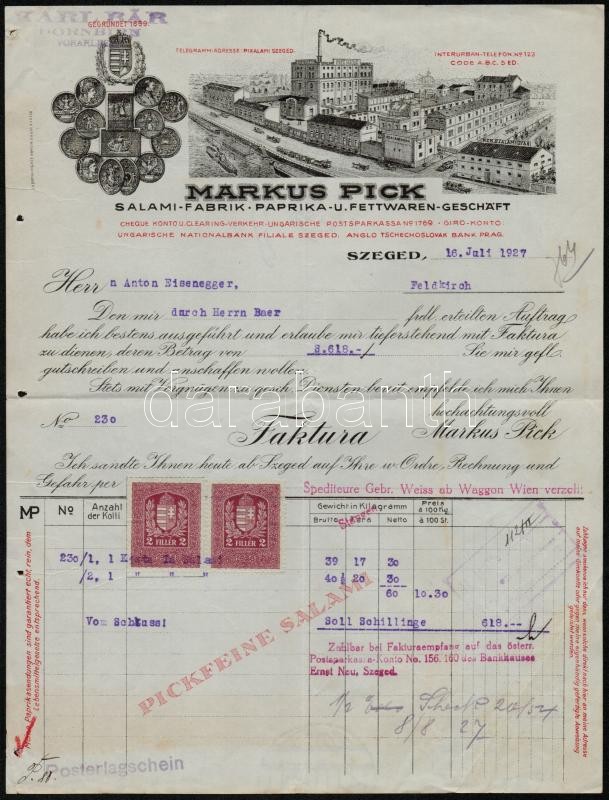 KARL BÄR
DORNBIRN
VORARLBERG
GEGRÜNDET 1869.
TELEGRAMM-ADRESSE: PIKALAMI SZEGED.
INTERURBAN-TELEFON: No 123
CODE A.B.C. 5 ED.
MARKUS PICK
SALAMI-FABRIK - PAPRIKA-U. FETTWAREN-GESCHÄFT
CHEQUE KONTO U. CLEARING-VERKEHR-UNGARISCHE POSTSPARKASSA No 1769 - GIRO-KONTO
UNGARISCHE NATIONALBANK FILIALE SZEGED. ANGLO TSCHECHOSLOVAK BANK PRAG.
SZEGED, 16. Juli 1927
Herrn Anton Eisenegger, Feldkirch
Den mir durch Herrn Baer frdl. erteilten Auftrag
habe ich bestens ausgeführt und erlaube mir tieferstehend mit Faktura
zu dienen, deren Betrag von S.618.-/ Sie mir gefl.
gutschreiben und anschaffen wollen.
Stets mit Vergnügen zu gesch. Diensten bereit empfehle ich mich Ihnen
hochachtungsvoll
No 230 Faktura Markus Pick
Ich sandte Ihnen heute ab Szeged auf Ihre w. Ordre, Rechnung und
Gefahr per
Spediteure Gebr. Weiss ab Waggon Wien verzollt
MP No Anzahl der Kolli Gewicht in Kilogramm Preis
Brutto Tara Netto à 100 Kg. à 100 St.
2 FILLÉR 2 2 FILLÉR 2
230/1, 1 Kiste Ia Salami 39 17 30
/2, 1 " " " 40½ 20 30
60 10.30
Vom Schluss! Soll Schillinge 618.--
PICKFEINE SALAMI
Zahlbar bei Fakturaempfang auf das österr.
Postsparkassa-Konto No. 156.160 des Bankhauses
Ernst Neu, Szeged.
8/8 27
Meine Paprikasendungen sind garantiert echt, rein, dem
Lebensmittelgesetze entsprechend.
Posterlagschein
darabanth